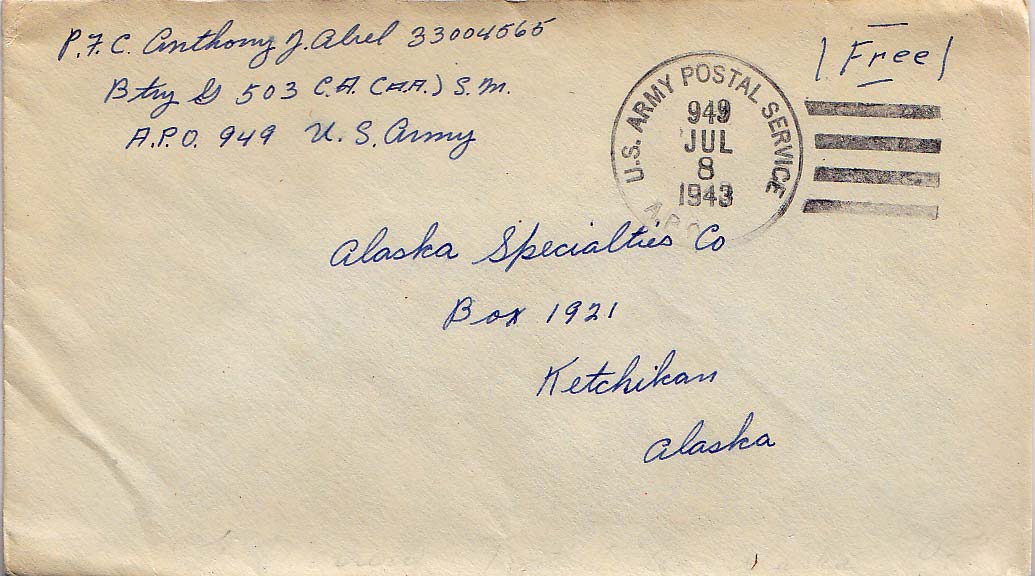 P.F.C. Anthony J. Abel 33004565
Btry G 503 C.A. (AA.) S.M.
A.P.O. 949 U. S. Army
| Free |
U.S. ARMY POSTAL SERVICE
949
JUL
8
1943
A.P.O.
Alaska Specialties Co
Box 1921
Ketchikan
Alaska